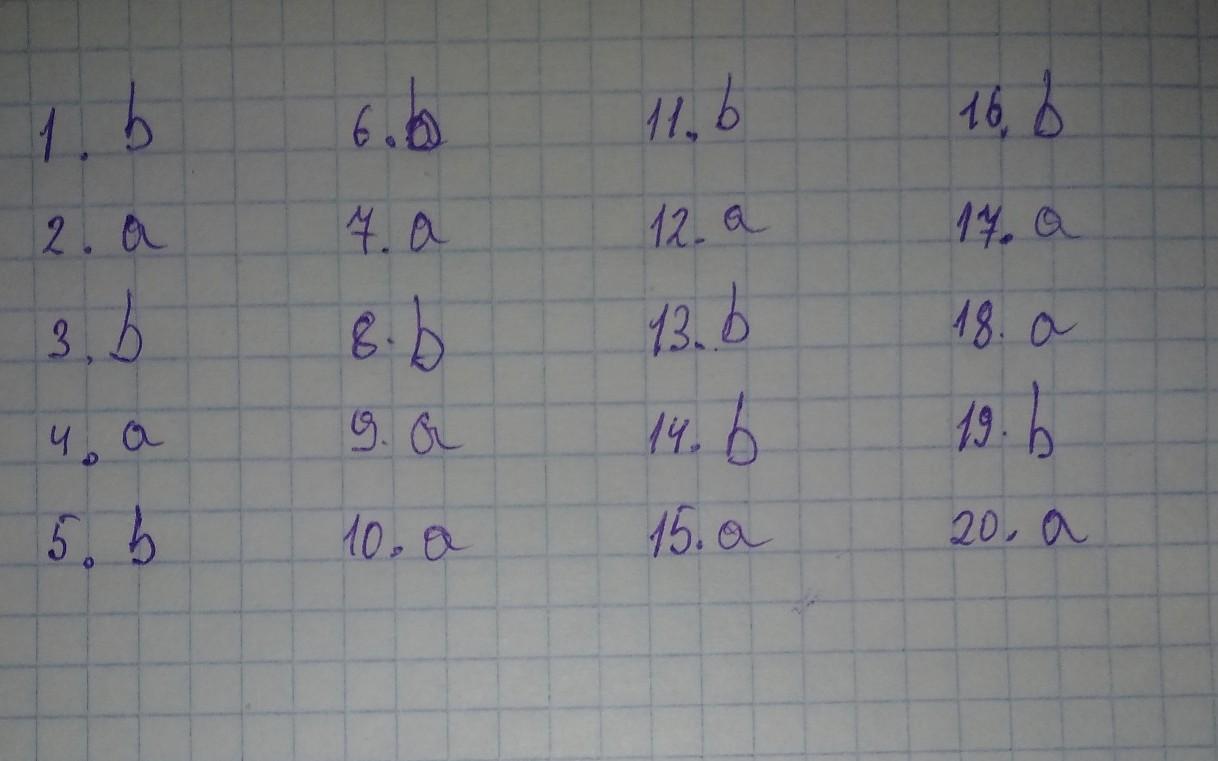 1. b 6. b 11. b 16. b
2. a 7. a 12. a 17. a
3. b 8. b 13. b 18. a
4. a 9. a 14. b 19. b
5. b 10. a 15. a 20. a